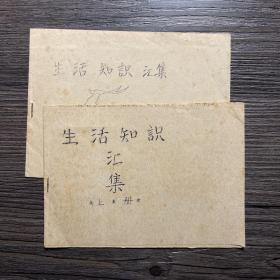 生活知识汇集
生活知识
汇
集
上册